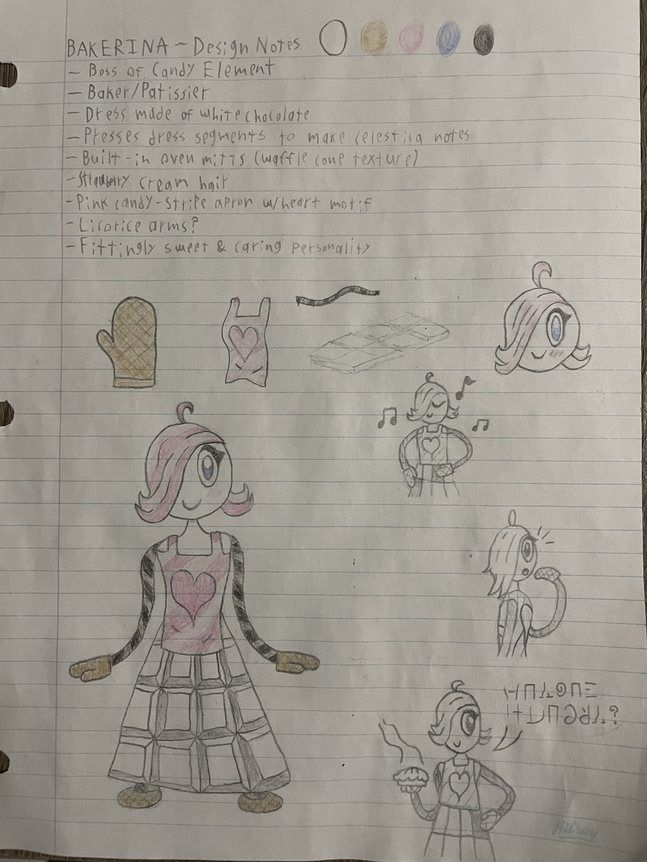 BAKERINA ~ Design Notes
~ Boss of Candy Element
- Baker/Patissier
~ Dress made of white chocolate
- Presses dress segments to make celestica notes
- Built-in oven mitts (waffle cone texture)
- Strawberry cream hair
- Pink candy-stripe apron w/heart motif
- Licorice arms?
- Fittingly sweet & caring personality